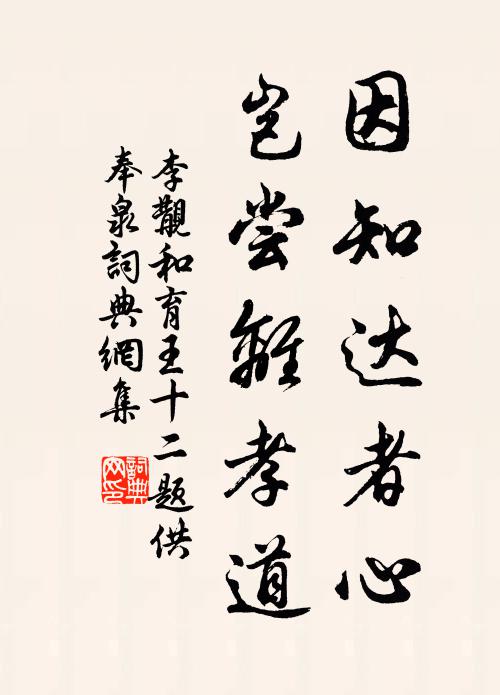 因知达者心
岂尝離孝道
李觏和育王十二题供
奉泉詞典網集
詞典
网印